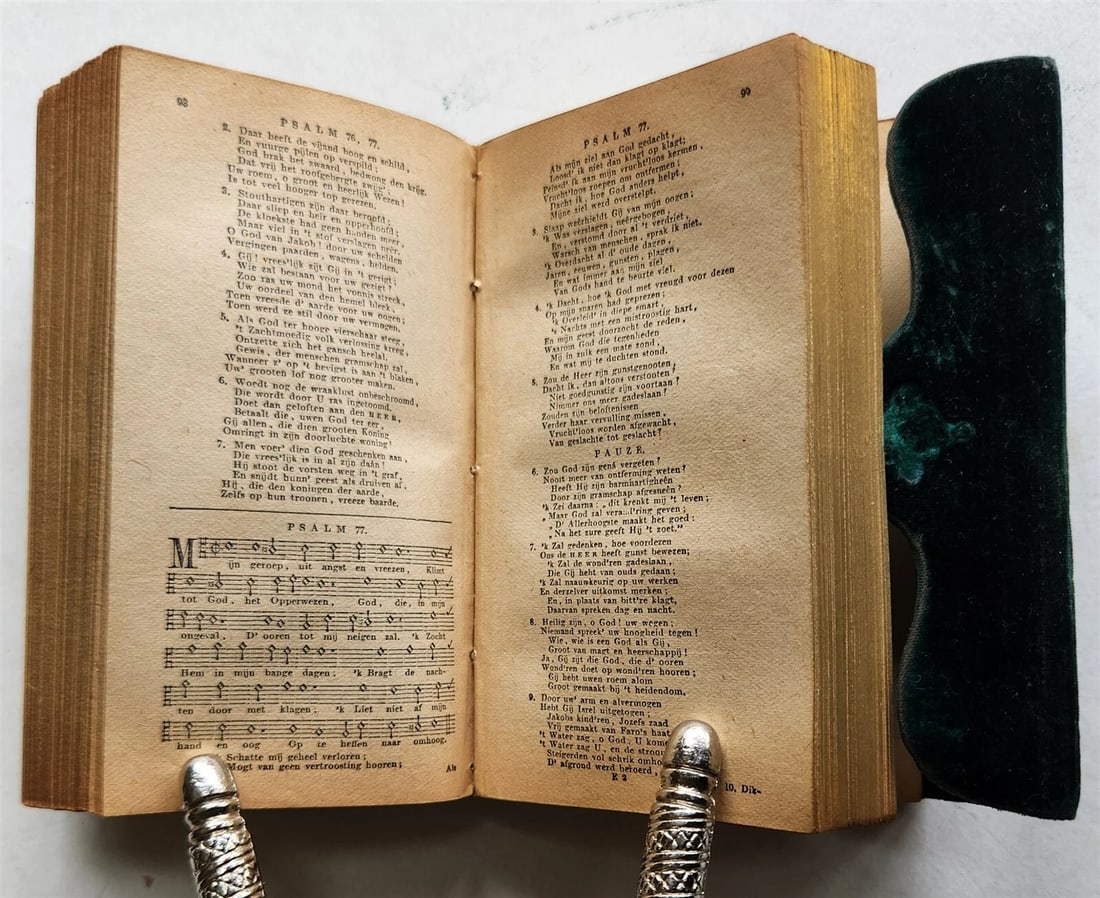 98
PSALM 76, 77.
2. Daar heeft de vijand boog en schild,
En vuurge pijlen op verspild;
God brak het zwaard, bedwong den krijg,
Dat vrij het roofgebergte zwijg';
Uw roem, o groot en heerlijk Wezen!
Is tot veel hooger top gerezen.
3. Stouthartigen zijn daar beroofd;
Daar sliep en heir en opperhoofd;
De kloekste had geen handen meer,
Maar viel in 't stof verslagen neêr,
O God van Jakob! door uw schelden
Vergingen paarden, wagens, helden.
4. Gij! vrees'lijk zijt Gij in 't gezigt;
Wie zal bestaan voor uw gezigt?
Zoo ras uw mond het vonnis streek,
Uw oordeel van den hemel bleek,
Toen vreesde d' aarde voor uw oogen;
Toen werd ze stil door uw vermogen.
5. Als God ter hooge vierschaar steeg,
't Zachtmoedig volk verlossing kreeg,
Ontzette zich het gansch heelal.
Gewis, der menschen gramschap zal,
Wanneer z' op 't hevigst is aan 't blaken,
Uw' grooten lof nog grooter maken.
6. Woedt nog de wraaklust onbeschroomd,
Die wordt door U ras ingetoomd.
Doet dan geloften aan den HEER,
Betaalt die, uwen God ter eer,
Gij allen, die dien grooten Koning
Omringt in zijn doorluchte woning!
7. Men voer' dien God geschenken aan,
Die vrees'lijk is in al zijn daân!
Hij stoot de vorsten weg in 't graf,
En snijdt hunn' geest als druiven af;
Hij, die den koningen der aarde,
Zelfs op hun troonen, vreeze baarde.
PSALM 77.
Mijn geroep, uit angst en vreezen, Klimt
tot God, het Opperwezen, God, die, in mijn
ongeval, D' ooren tot mij neigen zal. 'k Zocht
Hem in mijn bange dagen; 'k Bragt de nach-
ten door met klagen; 'k Liet niet af mijn
hand en oog Op te heffen naar omhoog.
Schatte mij geheel verloren;
Mogt van geen vertroosting hooren;
Als
99
PSALM 77.
Als mijn ziel aan God gedacht,
Loosd' ik niet dan klagt op klagt;
Peinsd' ik aan mijn vrucht'loos kermen,
Vrucht'loos roepen om ontfermen;
Dacht ik, hoe God anders helpt,
Mijne ziel werd overstelpt.
3. Slaap weêrhieldt Gij van mijn oogen;
'k Was verslagen, neêrgebogen,
En, verstomd door al 't verdriet,
Warsch van menschen, sprak ik niet.
'k Overdacht al d' oude dagen,
Jaren, eeuwen, gunsten, plagen,
En wat immer aan mijn ziel
Van Gods hand te beurte viel.
4. 'k Dacht, hoe 'k God met vreugd voor dezen
Op mijn snaren had geprezen;
'k Overleid' in diepe smart,
's Nachts met een mistroostig hart,
En mijn geest doorzocht de reden,
Waarom God die tegenheden
Mij in zulk een mate zond,
En wat mij te duchten stond.
5. Zou de Heer zijn gunstgenooten,
Dacht ik, dan altoos verstooten?
Niet goedgunstig zijn voortaan?
Nimmer ons meer gadeslaan?
Zouden zijn beloftenissen
Verder haar vervulling missen,
Vrucht'loos worden afgewacht,
Van geslachte tot geslacht?
PAUZE.
6. Zou God zijn genâ vergeten?
Nooit meer van ontferming weten?
Heeft Hij zijn barmhartigheên
Door zijn gramschap afgesneên?
'k Zei daarna: „dit krenkt mij 't leven;
„Maar God zal vera...l'ring geven;
„D' Allerhoogste maakt het goed:
„Na het zure geeft Hij 't zoet."
7. 'k Zal gedenken, hoe voordezen
Ons de HEER heeft gunst bewezen;
'k Zal de wond'ren gadeslaan,
Die Gij hebt van ouds gedaan;
'k Zal naauwkeurig op uw werken
En derzelver uitkomst merken;
En, in plaats van bitt're klagt,
Daarvan spreken dag en nacht.
8. Heilig zijn, o God! uw wegen;
Niemand spreek' uw hoogheid tegen!
Wie, wie is een God als Gij,
Groot van magt en heerschappij!
Ja, Gij zijt die God, die d' ooren
Wond'ren doet op wond'ren hooren;
Gij hebt uwen roem alom
Groot gemaakt bij 't heidendom.
9. Door uw' arm en alvermogen
Hebt Gij Isrel uitgetogen;
Jakobs kind'ren, Jozefs zaad
Vrij gemaakt van Faro's haat
't Water zag, o God, U kom
't Water zag U, en de stroo
Steigerden vol schrik omho
D' afgrond werd beroerd,
E 2
10. Dik-